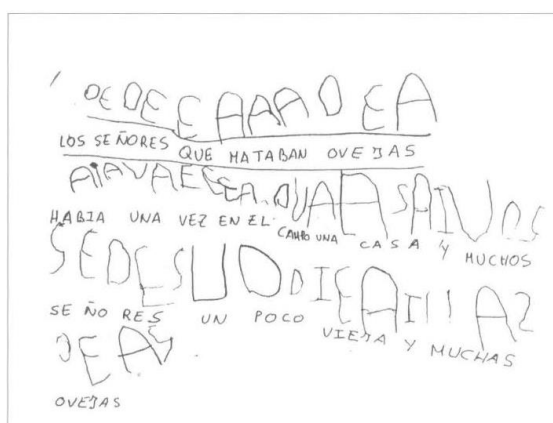 OE DE E AAAO EA
LOS SEÑORES QUE MATABAN OVEJAS
AIAVAEESEA.OUAA SAIUOS
HABIA UNA VEZ EN EL CAMPO UNA CASA Y MUCHOS
SEDESUODIEAIIIAS
SEÑORES UN POCO VIEJA Y MUCHAS
OEAS
OVEJAS